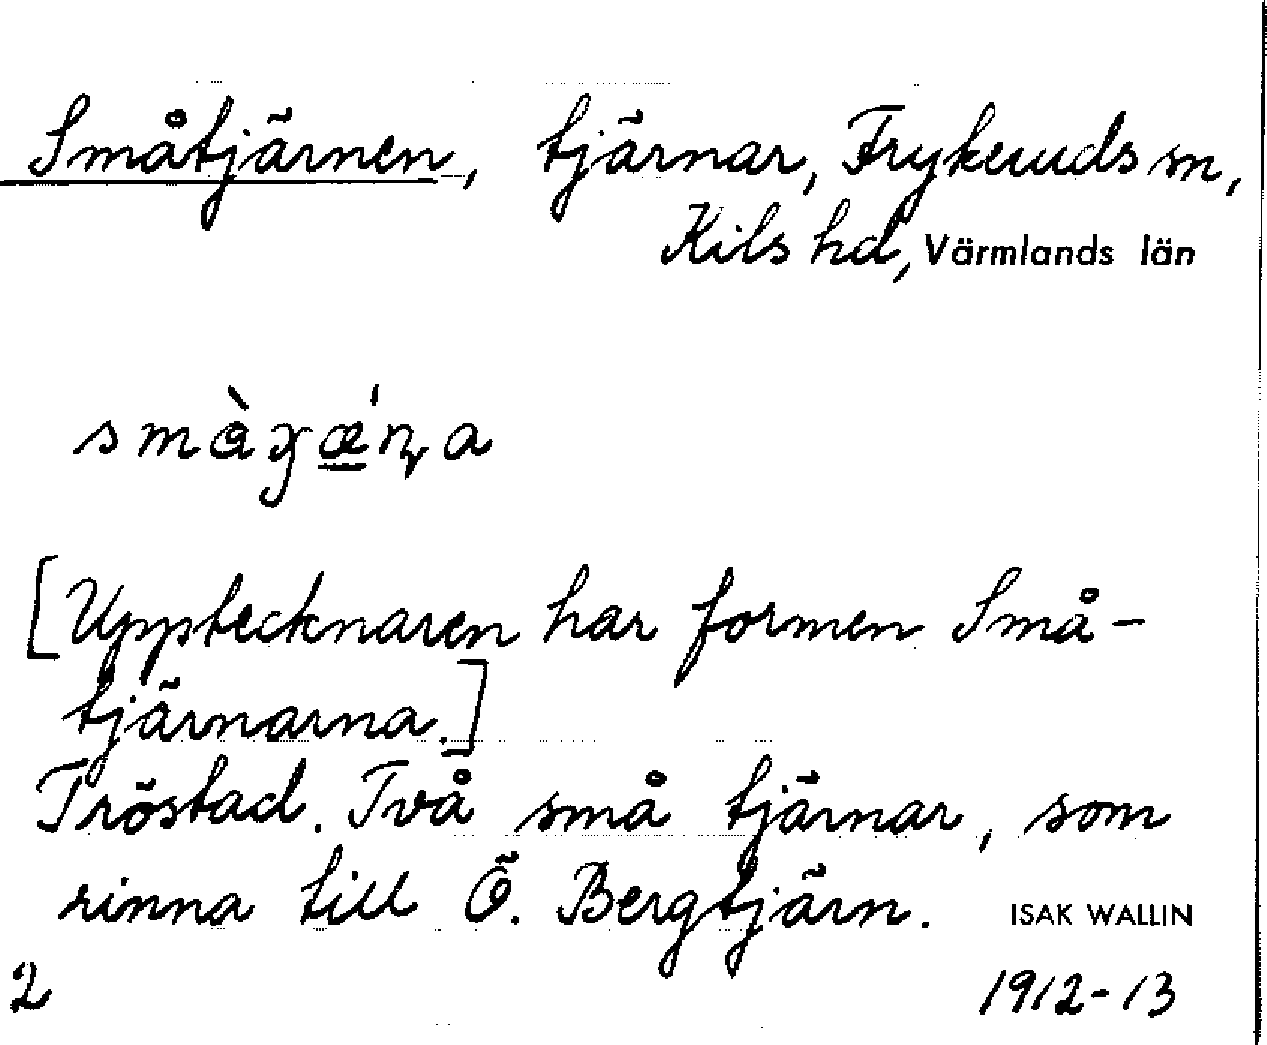 Småtjärnen, tjärnar, Frykeruds sn,
Kils hd, Värmlands län
[Upptecknaren har formen Små-
tjärnarna.]
Tröstad. Två små tjärnar, som
rinna till Ö. Bergtjärn. ISAK WALLIN
2 1912-13